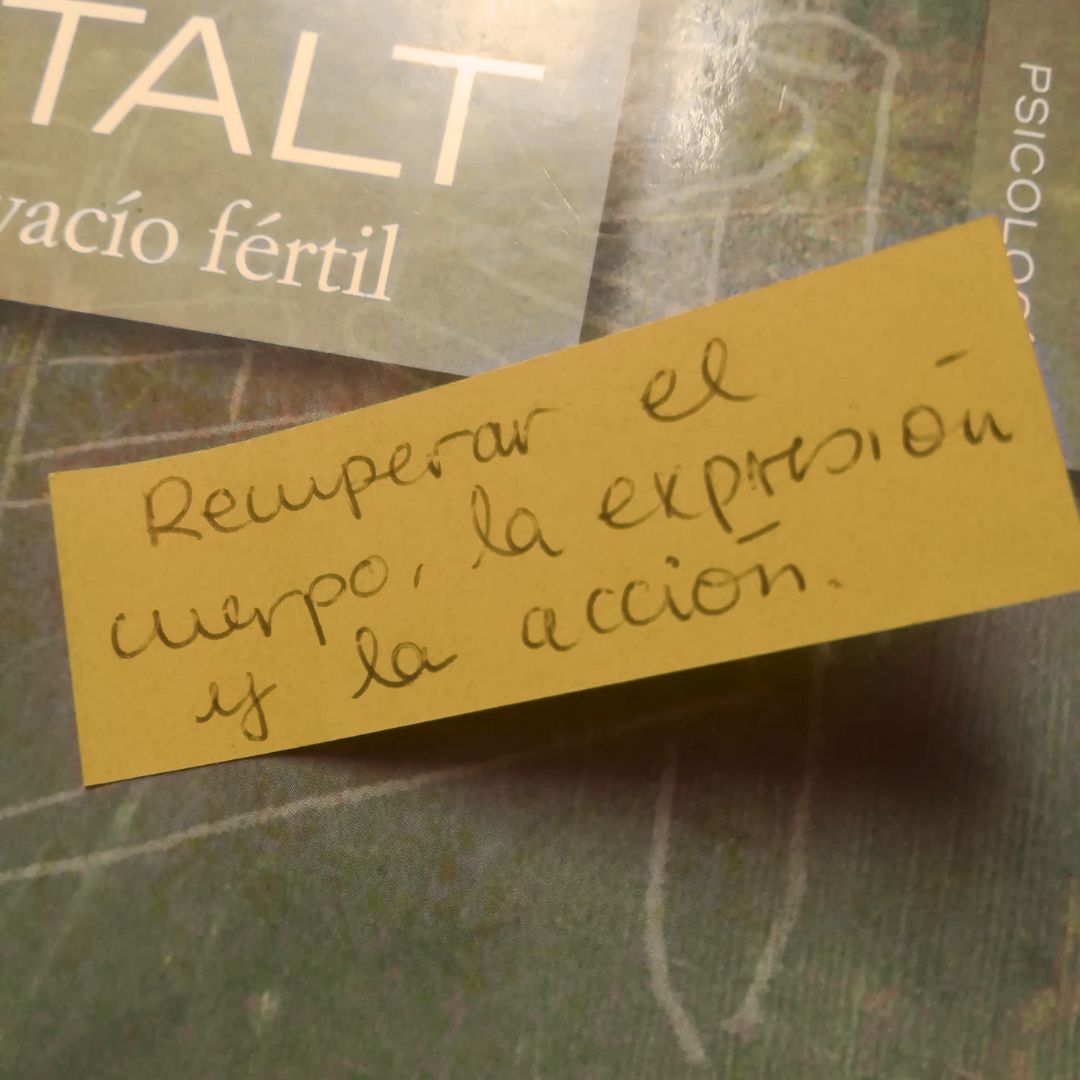 TALT
vacío fértil
PSICOLOG
Recuperar el
cuerpo, la expresión
y la acción.